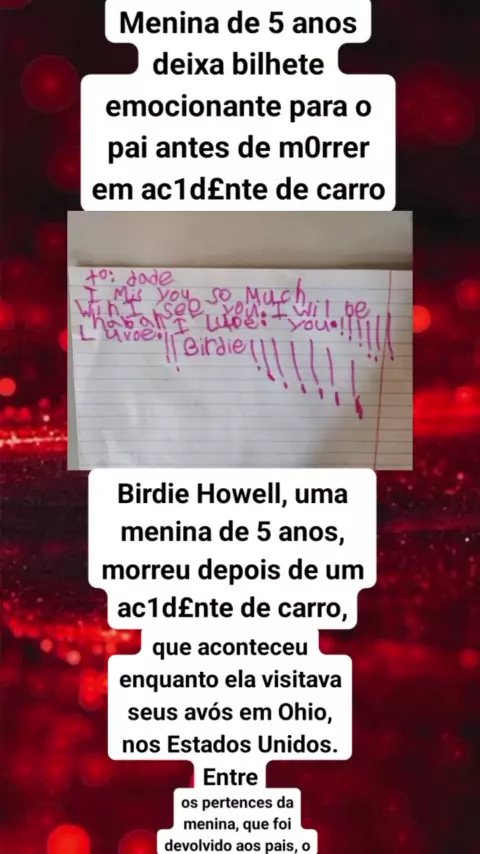 Menina de 5 anos
deixa bilhete
emocionante para o
pai antes de m0rrer
em ac1d£nte de carro
to: dade
I Mis you so Much
Win I see you. I wil be
I Luve. you.!!!!!!
Luvoe.!!
Birdie!!!!!!!!
Birdie Howell, uma
menina de 5 anos,
morreu depois de um
ac1d£nte de carro,
que aconteceu
enquanto ela visitava
seus avós em Ohio,
nos Estados Unidos.
Entre
os pertences da
menina, que foi
devolvido aos pais, o